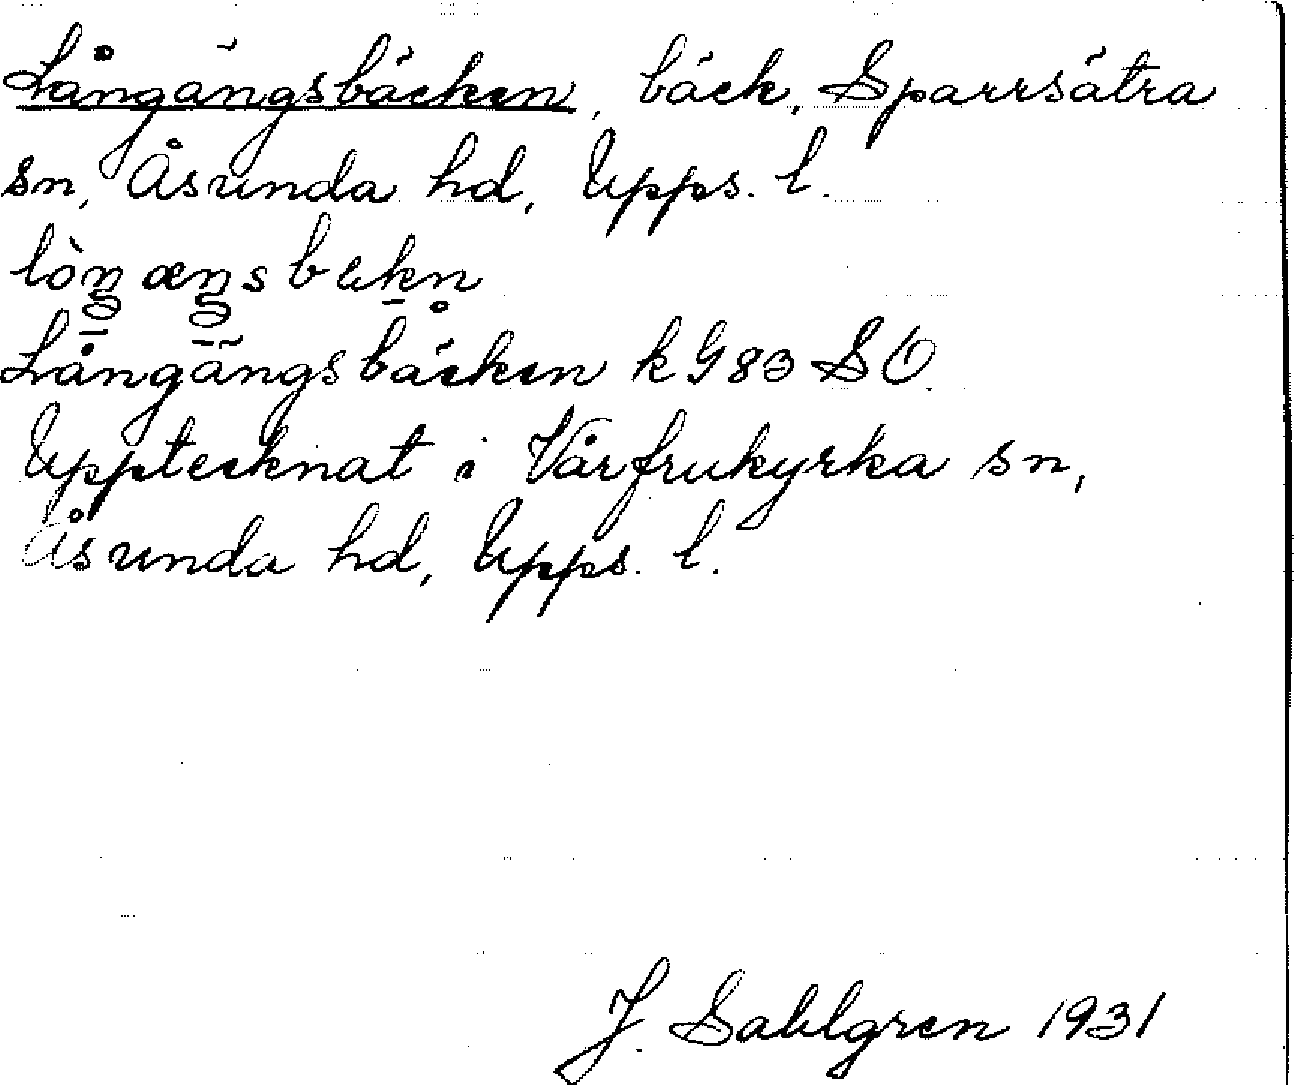 Långängsbäcken, bäck, Sparrsätra
sn, Åsunda hd, Upps. l.
lòŋæŋsbekn̥
Långängsbäcken k G83 SO.
Upptecknat i Vårfrukyrka sn,
Åsunda hd, Upps. l.
J. Sahlgren 1931